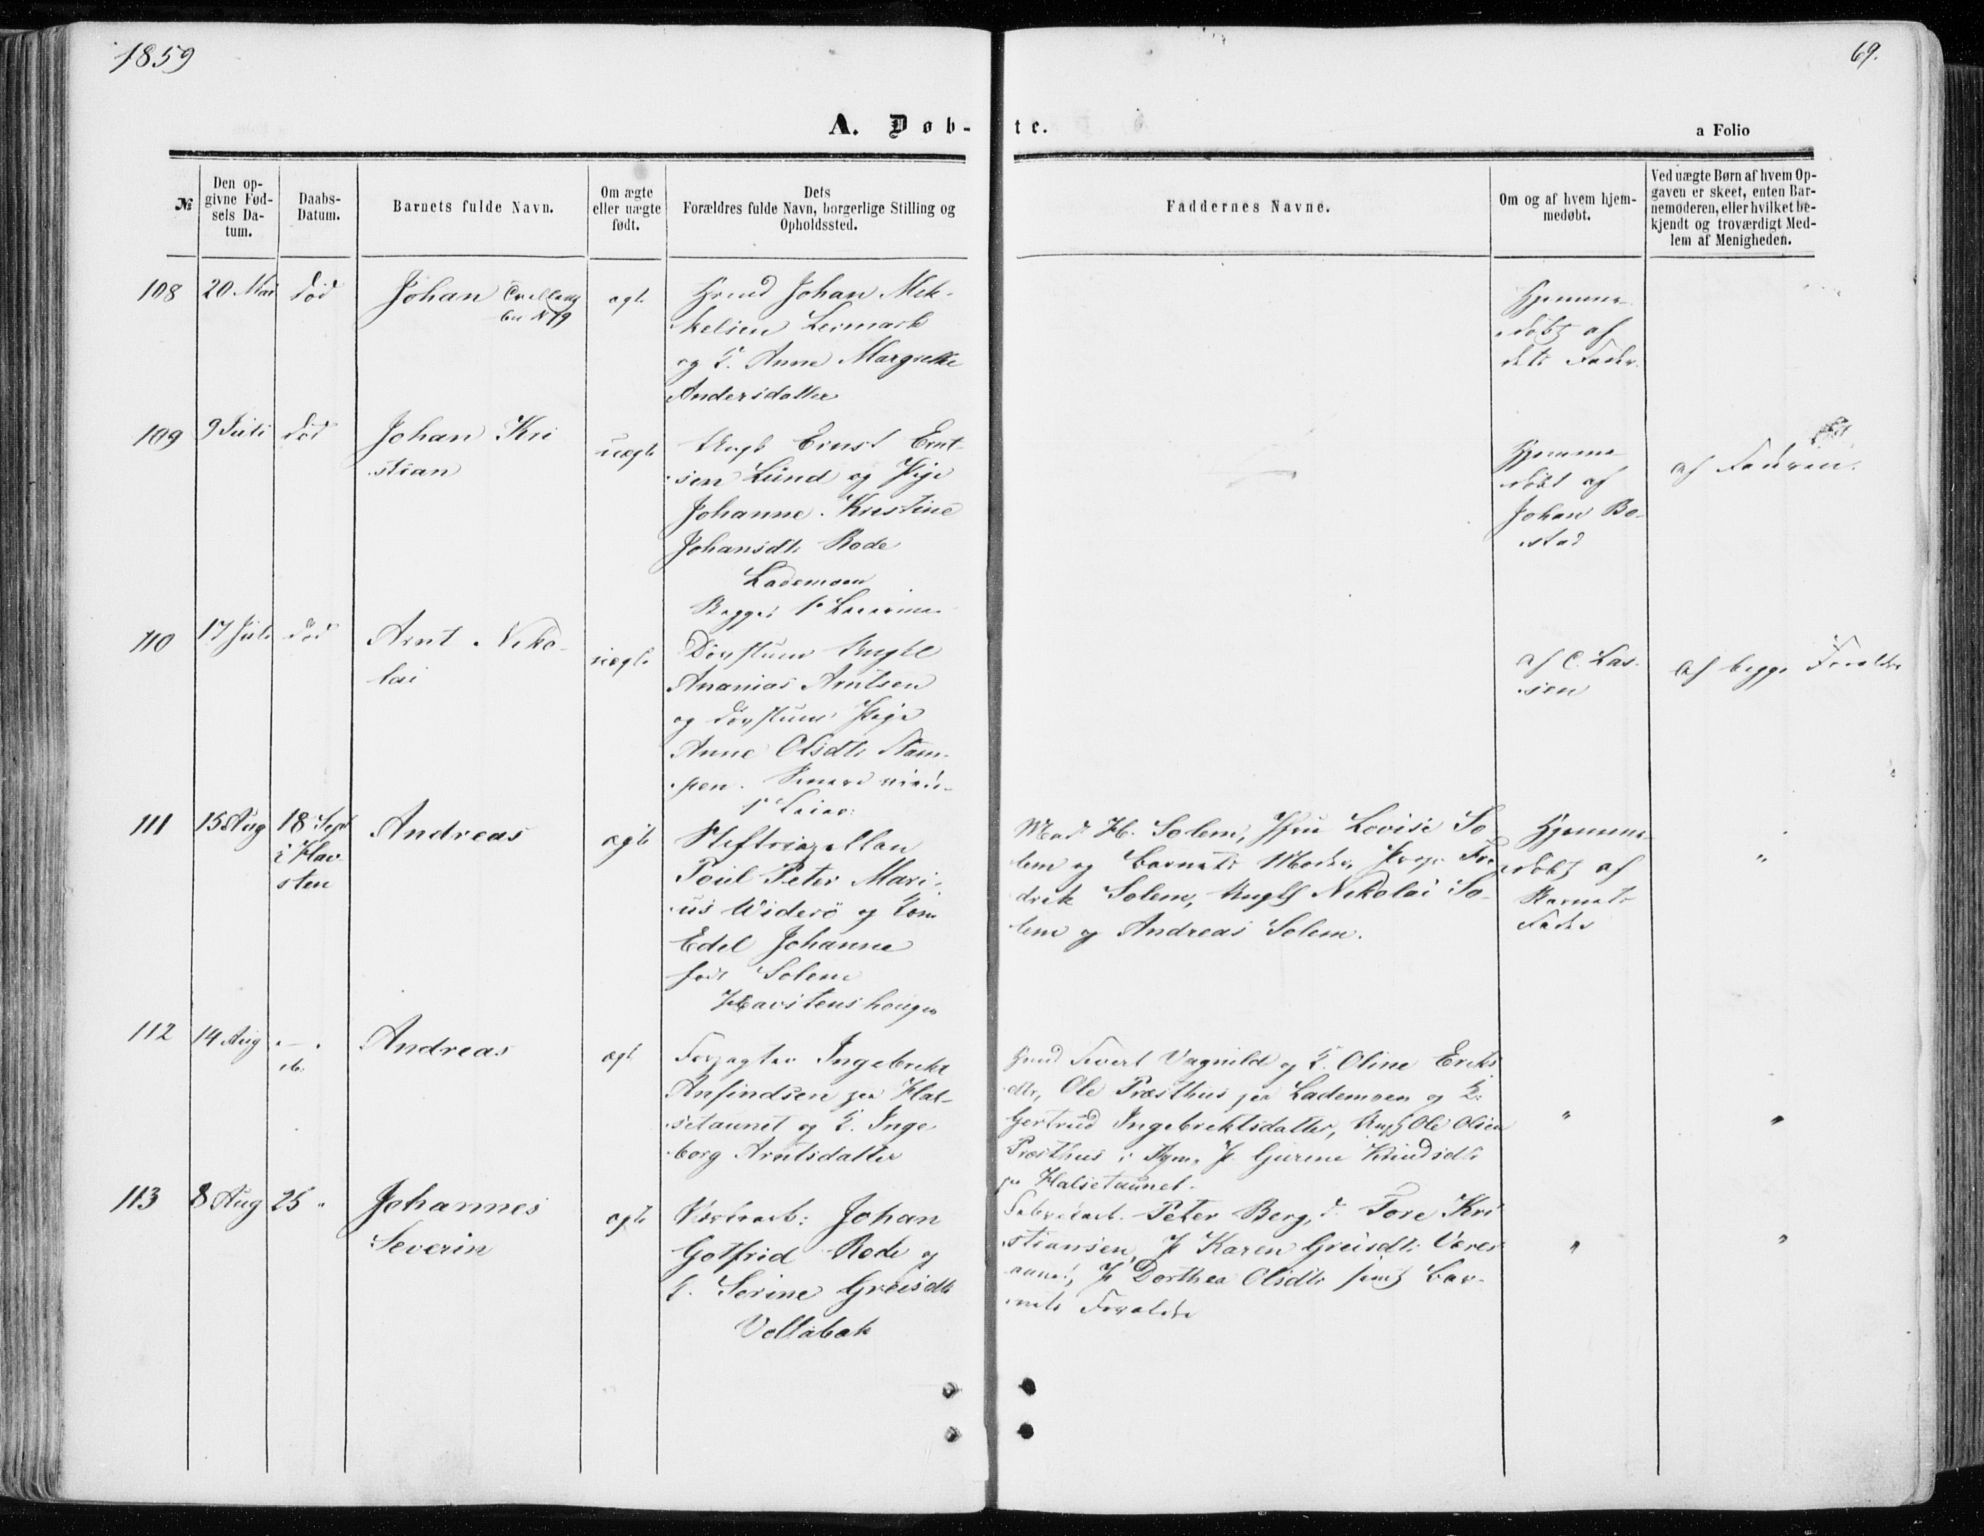 1859
69.
A. Døb-
te.
a Folio
№
Den op-
givne Fød-
sels Da-
tum.
Daabs-
Datum.
Barnets fulde Navn.
Om ægte
eller uægte
født.
Dets
Forældres fulde Navn, borgerlige Stilling og
Opholdssted.
Faddernes Navne.
Om og af hvem hjem-
medøbt.
Ved uægte Børn af hvem Op-
gaven er skeet, enten Bar-
nemoderen, eller hvilket be-
kjendt og troværdigt Med-
lem af Menigheden.
108
20 Mai
død
Johan
ægte
Johan Mek-
kelsen Leirmark
og K. Anne Margrethe
Andersdatter
Hjemme-
døbt af
dets Fader
109
9 Juli
død
Johan Kri
stian
uægte
Ungk Ernst Ernt-
sen Lund og Pige
Johanne Kristine
Johansdtr Rode
Lademoen
Begges 1ste
Hjemme
døbt af
Johan Bo-
stad
af Faderen.
110
17 Juli
død
Arnt Niko-
lai
uægte
Døvstum Ungkl
Ananias Arntsen
og døvstum Pige
Anne Olsdtr Stam-
pen.
af C. Las-
sen
af begge Forældre
111
15 Aug
18 Sept
i Hav-
sten
Andreas
ægte
Stiftscapellan
Poul Peter Mari-
us Widerö og Kone
Edel Johanne
født Solem
Havstenshougen
Mad. H. Solem, Jfru Lovise So
lem og Barnets Moder, Prop. Fre
drik Solem, Ungk Nikolai So-
lem og Andreas Solem.
Hjemme-
døbt af
Barnets
Fader
"
112
14 Aug
— "
ib.
Andreas
ægt
Forpagter Ingebrikt
Anfindsen paa Hal-
setaunet og K. Inge
borg Arntsdatter
Sivert Vagnild og K. Oline Eriks
dtr, Ole Præsthus paa Lademoen og K.
Gertrud Ingebrektsdatter, Ungk Ole Olsen
Præsthus i P. Gurine Knudsdtr
paa Halsetaunet.
"
"
113
8 Aug
25 "
Johannes
Severin
ægte
Johan
Gotfrid Rode og
K. Serine Greisdtr
Vollabak
Peter Berg, d. Tore Kri
stiansen, P. Karen Greisdtr
P. Dorthea Olsdtr samt Bar-
nets Forældre
"
"